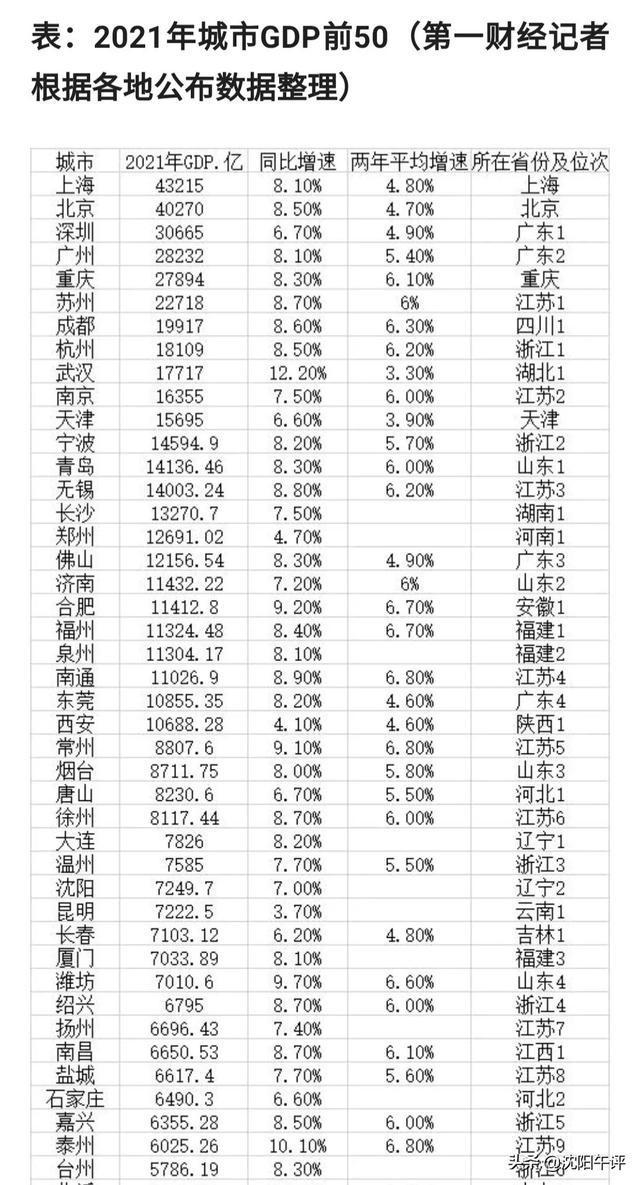 表：2021年城市GDP前50（第一财经记者
根据各地公布数据整理）
城市 2021年GDP.亿 同比增速 两年平均增速 所在省份及位次
上海 43215 8.10% 4.80% 上海
北京 40270 8.50% 4.70% 北京
深圳 30665 6.70% 4.90% 广东1
广州 28232 8.10% 5.40% 广东2
重庆 27894 8.30% 6.10% 重庆
苏州 22718 8.70% 6% 江苏1
成都 19917 8.60% 6.30% 四川1
杭州 18109 8.50% 6.20% 浙江1
武汉 17717 12.20% 3.30% 湖北1
南京 16355 7.50% 6.00% 江苏2
天津 15695 6.60% 3.90% 天津
宁波 14594.9 8.20% 5.70% 浙江2
青岛 14136.46 8.30% 6.00% 山东1
无锡 14003.24 8.80% 6.20% 江苏3
长沙 13270.7 7.50% 湖南1
郑州 12691.02 4.70% 河南1
佛山 12156.54 8.30% 4.90% 广东3
济南 11432.22 7.20% 6% 山东2
合肥 11412.8 9.20% 6.70% 安徽1
福州 11324.48 8.40% 6.70% 福建1
泉州 11304.17 8.10% 福建2
南通 11026.9 8.90% 6.80% 江苏4
东莞 10855.35 8.20% 4.60% 广东4
西安 10688.28 4.10% 4.60% 陕西1
常州 8807.6 9.10% 6.80% 江苏5
烟台 8711.75 8.00% 5.80% 山东3
唐山 8230.6 6.70% 5.50% 河北1
徐州 8117.44 8.70% 6.00% 江苏6
大连 7826 8.20% 辽宁1
温州 7585 7.70% 5.50% 浙江3
沈阳 7249.7 7.00% 辽宁2
昆明 7222.5 3.70% 云南1
长春 7103.12 6.20% 4.80% 吉林1
厦门 7033.89 8.10% 福建3
潍坊 7010.6 9.70% 6.60% 山东4
绍兴 6795 8.70% 6.00% 浙江4
扬州 6696.43 7.40% 江苏7
南昌 6650.53 8.70% 6.10% 江西1
盐城 6617.4 7.70% 5.60% 江苏8
石家庄 6490.3 6.60% 河北2
嘉兴 6355.28 8.50% 6.00% 浙江5
泰州 6025.26 10.10% 6.80% 江苏9
台州 5786.19 8.30% 浙江6
头条 @沈阳午评